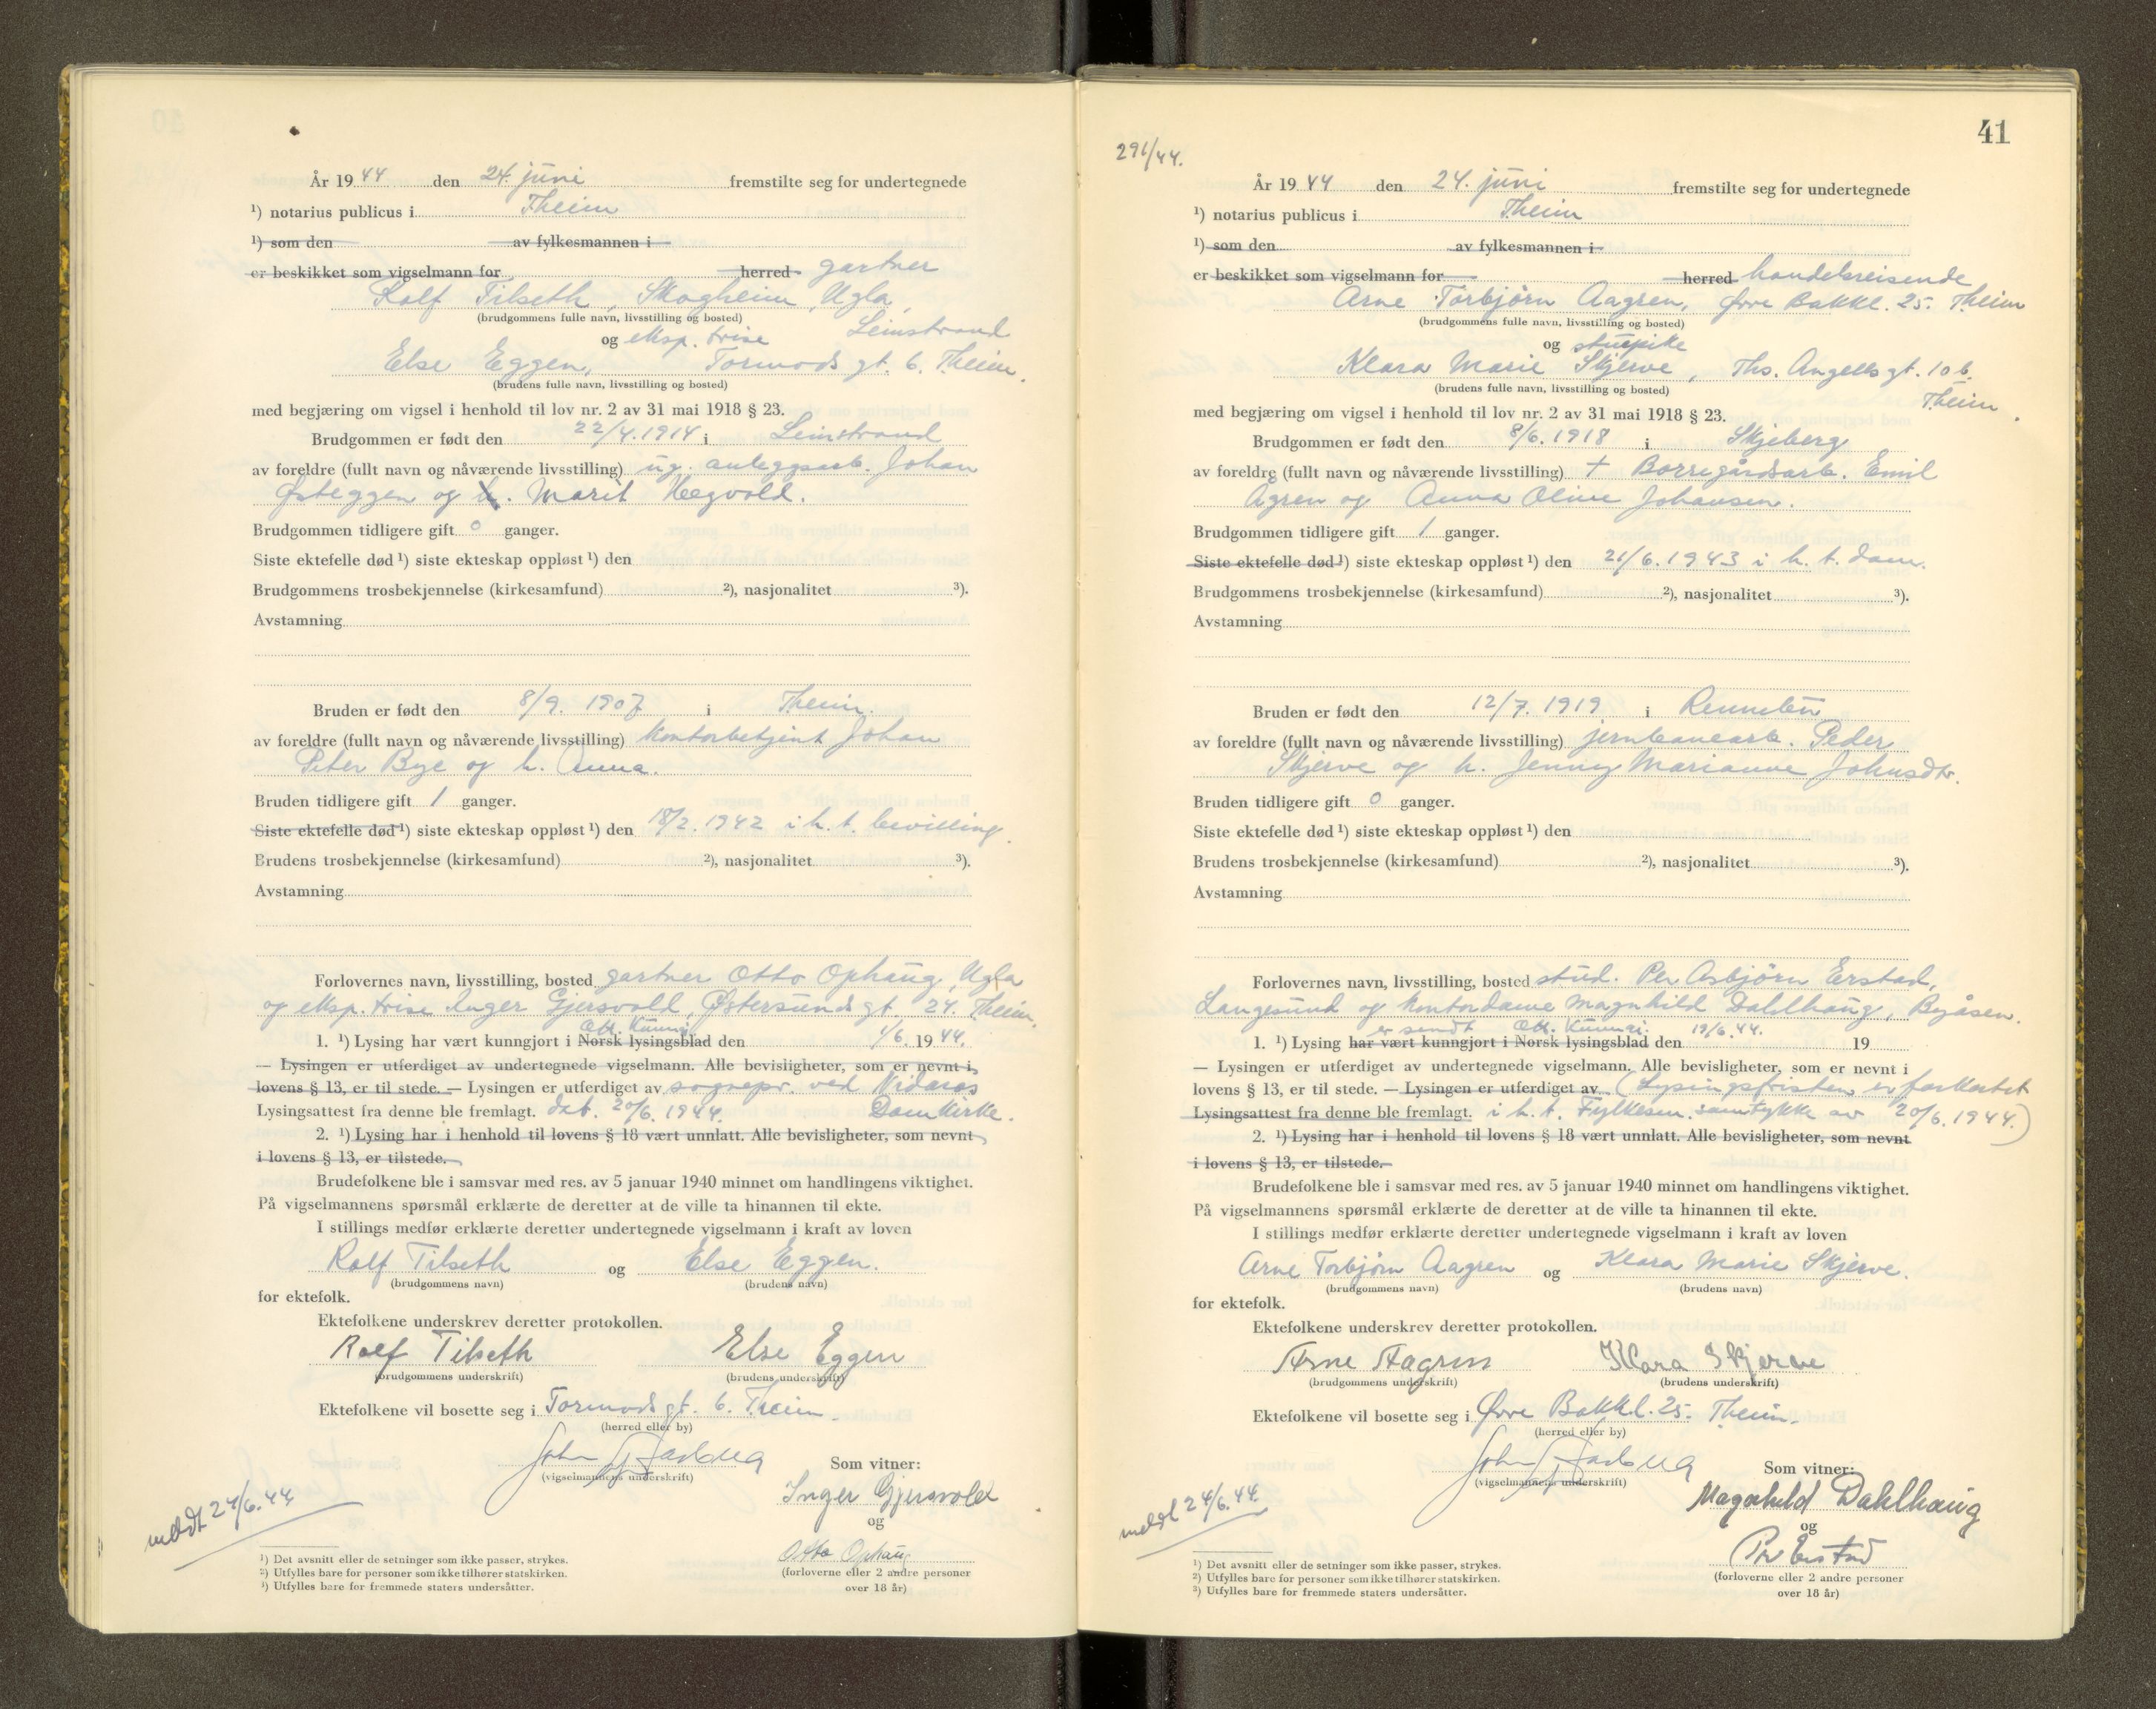 År 19 44 den 24. juni fremstilte seg for undertegnede
¹) notarius publicus i Theim
¹) som den av fylkesmannen i
er beskikket som vigselmann for herred gartner
Rolf Tilseth, Skogheim, Ugla,
(brudgommens fulle navn, livsstilling og bosted)
Leinstrand
og eksp. trise
Else Eggen, Tormods gt. 6. Theim.
(brudens fulle navn, livsstilling og bosted)
med begjæring om vigsel i henhold til lov nr. 2 av 31 mai 1918 § 23.
Brudgommen er født den 22/4. 1914 i Leinstrand
av foreldre (fullt navn og nåværende livsstilling) ug. anleggsarb. Johan
Østeggen og h. Marit Hegvold.
Brudgommen tidligere gift 0 ganger.
Siste ektefelle død ¹) siste ekteskap oppløst ¹) den
Brudgommens trosbekjennelse (kirkesamfund) ²), nasjonalitet ³).
Avstamning
Bruden er født den 8/9. 1907 i Theim.
av foreldre (fullt navn og nåværende livsstilling) Kontorbetjent Johan
Peter Bye og h. Anna.
Bruden tidligere gift 1 ganger.
Siste ektefelle død ¹) siste ekteskap oppløst ¹) den 18/2. 1942 i h. t. bevilling.
Brudens trosbekjennelse (kirkesamfund) ²), nasjonalitet ³).
Avstamning
Forlovernes navn, livsstilling, bosted gartner Otto Ophaug, Ugla
og eksp. trise Inger Gjersvold, Østersunds gt 24. Theim.
Off. Kunngj.
1. ¹) Lysing har vært kunngjort i Norsk lysingsblad den 1/6. 19 44.
— Lysingen er utferdiget av undertegnede vigselmann. Alle bevisligheter, som er nevnt i
lovens § 13, er til stede. — Lysingen er utferdiget av sognepr. ved Nidaros
Lysingsattest fra denne ble fremlagt. dat. 20/6. 1944. Domkirke.
2. ¹) Lysing har i henhold til lovens § 18 vært unnlatt. Alle bevisligheter, som nevnt
i lovens § 13, er tilstede.
Brudefolkene ble i samsvar med res. av 5 januar 1940 minnet om handlingens viktighet.
På vigselmannens spørsmål erklærte de deretter at de ville ta hinannen til ekte.
I stillings medfør erklærte deretter undertegnede vigselmann i kraft av loven
Rolf Tilseth og Else Eggen.
(brudgommens navn) (brudens navn)
for ektefolk.
Ektefolkene underskrev deretter protokollen.
Rolf Tilseth Else Eggen
(brudgommens underskrift) (brudens underskrift)
Ektefolkene vil bosette seg i Tormods gt. 6. Theim.
(herred eller by)
John
(vigselmannens underskrift)
Som vitner:
Inger Gjersvold
og
Otto Ophaug
(forloverne eller 2 andre personer
over 18 år)
meldt 24/6. 44.
¹) Det avsnitt eller de setninger som ikke passer, strykes.
²) Utfylles bare for personer som ikke tilhører statskirken.
³) Utfylles bare for fremmede staters undersåtter.
41
291/44.
År 19 44 den 24. juni fremstilte seg for undertegnede
¹) notarius publicus i Theim
¹) som den av fylkesmannen i
er beskikket som vigselmann for herred handelsreisende
Arne Torbjørn Aagren, Øvre Bakkl. 25. Theim
(brudgommens fulle navn, livsstilling og bosted)
og stuepike
Klara Marie Skjerve, Ths. Angells gt. 10 b.
(brudens fulle navn, livsstilling og bosted)
Theim.
med begjæring om vigsel i henhold til lov nr. 2 av 31 mai 1918 § 23.
Brudgommen er født den 8/6. 1918 i Skjeberg
av foreldre (fullt navn og nåværende livsstilling) † Borregårdsarb. Emil
Ågren og Anna Oline Johansen.
Brudgommen tidligere gift 1 ganger.
Siste ektefelle død ¹) siste ekteskap oppløst ¹) den 21/6. 1943 i h. t. dom.
Brudgommens trosbekjennelse (kirkesamfund) ²), nasjonalitet ³).
Avstamning
Bruden er født den 12/7. 1919 i Rennebu
av foreldre (fullt navn og nåværende livsstilling) jernbanearb. Peder
Skjerve og h. Jenny Marianne Johnsdtr.
Bruden tidligere gift 0 ganger.
Siste ektefelle død ¹) siste ekteskap oppløst ¹) den
Brudens trosbekjennelse (kirkesamfund) ²), nasjonalitet ³).
Avstamning
Forlovernes navn, livsstilling, bosted stud. Per Asbjørn Erstad,
Langesund og Kontordame Magnhild Dahlhaug, Byåsen.
er sendt Off. Kunngj. 19/6. 44.
1. ¹) Lysing har vært kunngjort i Norsk lysingsblad den 19
— Lysingen er utferdiget av undertegnede vigselmann. Alle bevisligheter, som er nevnt i
lovens § 13, er til stede. — Lysingen er utferdiget av (Lysingsfristen er forkortet
Lysingsattest fra denne ble fremlagt. i h. t. Fylkesm. samtykke av 20/6. 1944.)
2. ¹) Lysing har i henhold til lovens § 18 vært unnlatt. Alle bevisligheter, som nevnt
i lovens § 13, er tilstede.
Brudefolkene ble i samsvar med res. av 5 januar 1940 minnet om handlingens viktighet.
På vigselmannens spørsmål erklærte de deretter at de ville ta hinannen til ekte.
I stillings medfør erklærte deretter undertegnede vigselmann i kraft av loven
Arne Torbjørn Aagren og Klara Marie Skjerve.
(brudgommens navn) (brudens navn)
for ektefolk.
Ektefolkene underskrev deretter protokollen.
Arne Aagren Klara Skjerve
(brudgommens underskrift) (brudens underskrift)
Ektefolkene vil bosette seg i Øvre Bakkl. 25. Theim.
(herred eller by)
John
(vigselmannens underskrift)
Som vitner:
Magnhild Dahlhaug
og
Per Erstad
(forloverne eller 2 andre personer
over 18 år)
meldt 24/6. 44.
¹) Det avsnitt eller de setninger som ikke passer, strykes.
²) Utfylles bare for personer som ikke tilhører statskirken.
³) Utfylles bare for fremmede staters undersåtter.